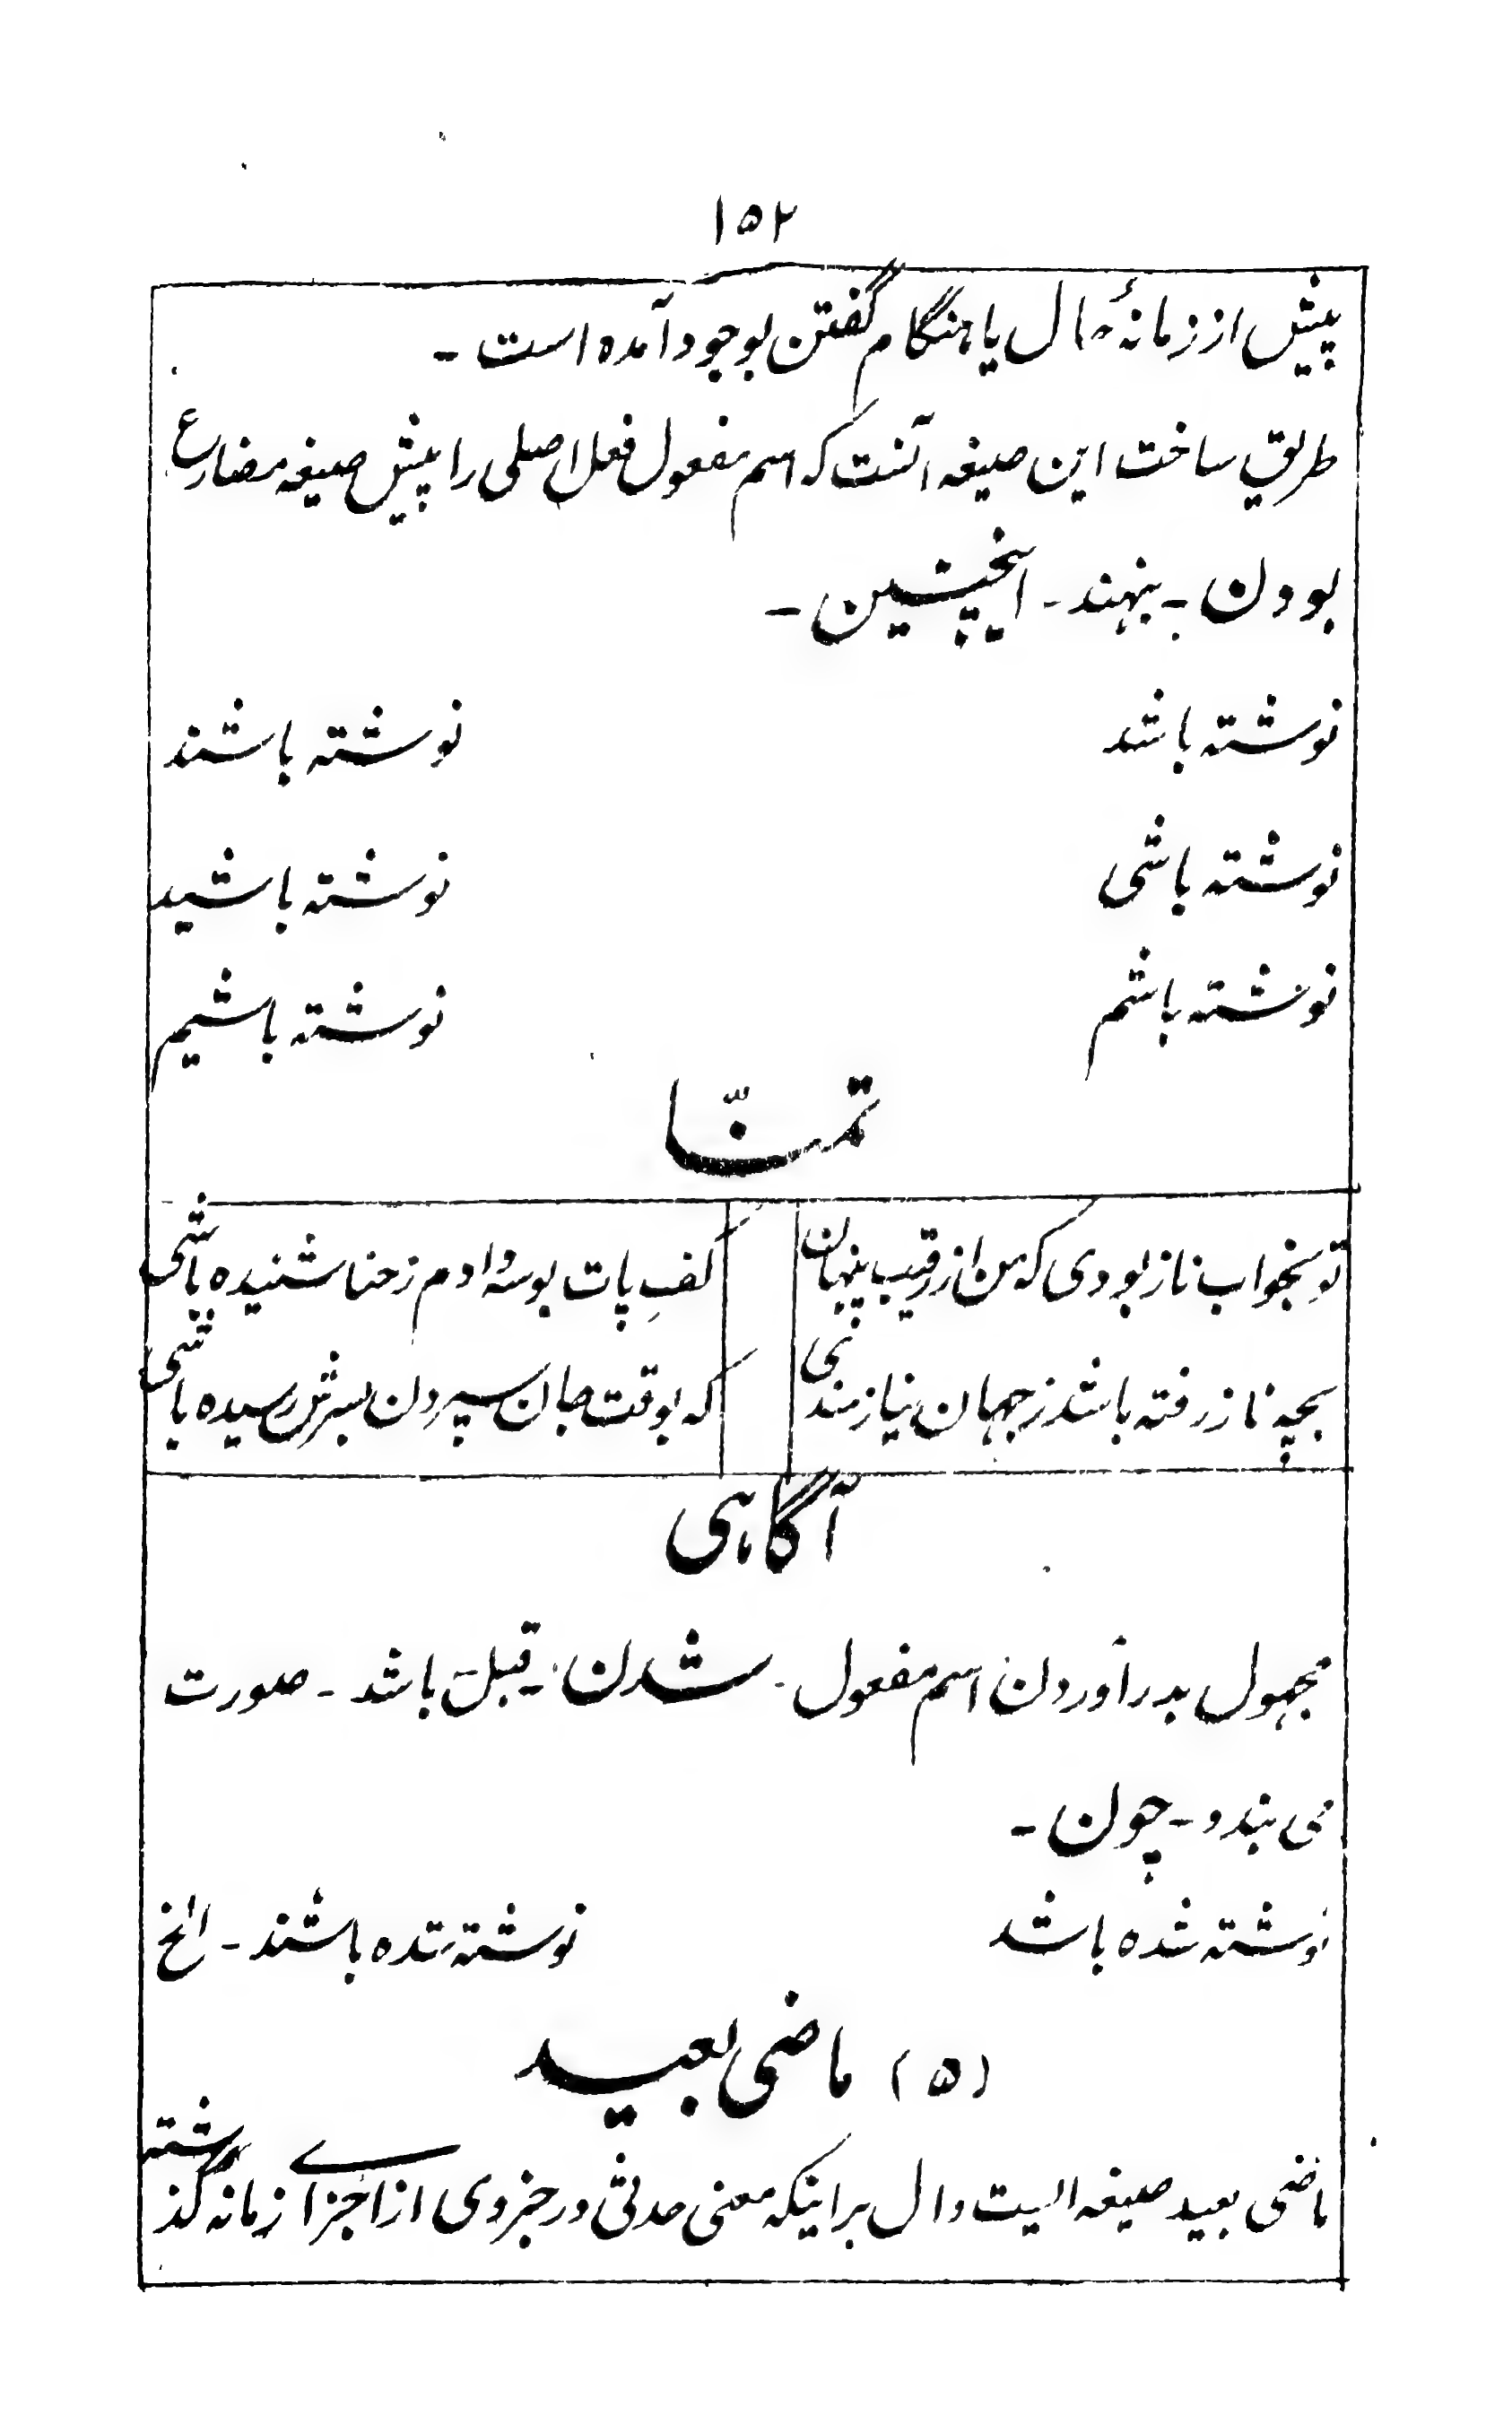 ۱۵۲
پیش از زمانهٔ حال یا هنگام گفتن بوجود آمده است ـ
طریق ساخت این صیغه آنست که اسم مفعول فعل اصلی را پیش صیغه مضارع
بودن ـ بنهند ـ اینچنین ـ
نوشته باشد نوشته باشند
نوشته باشی نوشته باشید
نوشته باشم نوشته باشیم
تمنّا
تو بخواب ناز بودی که من از رقیب پنهان کفِ پات بوسه دادم ز حنا شنیده باشی
بچه ناز رفته باشد ز جهان نیازمندی که بوقت جان سپردن بسرش رسیده باشی
آگاهی
مجهول بدر آوردن اسم مفعول ـ شدن ـ قبل باشد ـ صورت
می بندد ـ چون ـ
نوشته شده باشد نوشته شده باشند ـ الخ
(۵) ماضی بعید
ماضی بعید صیغه ایست دال بر اینکه معنی حدثی در جزوی از اجزاے زمانه گذشته